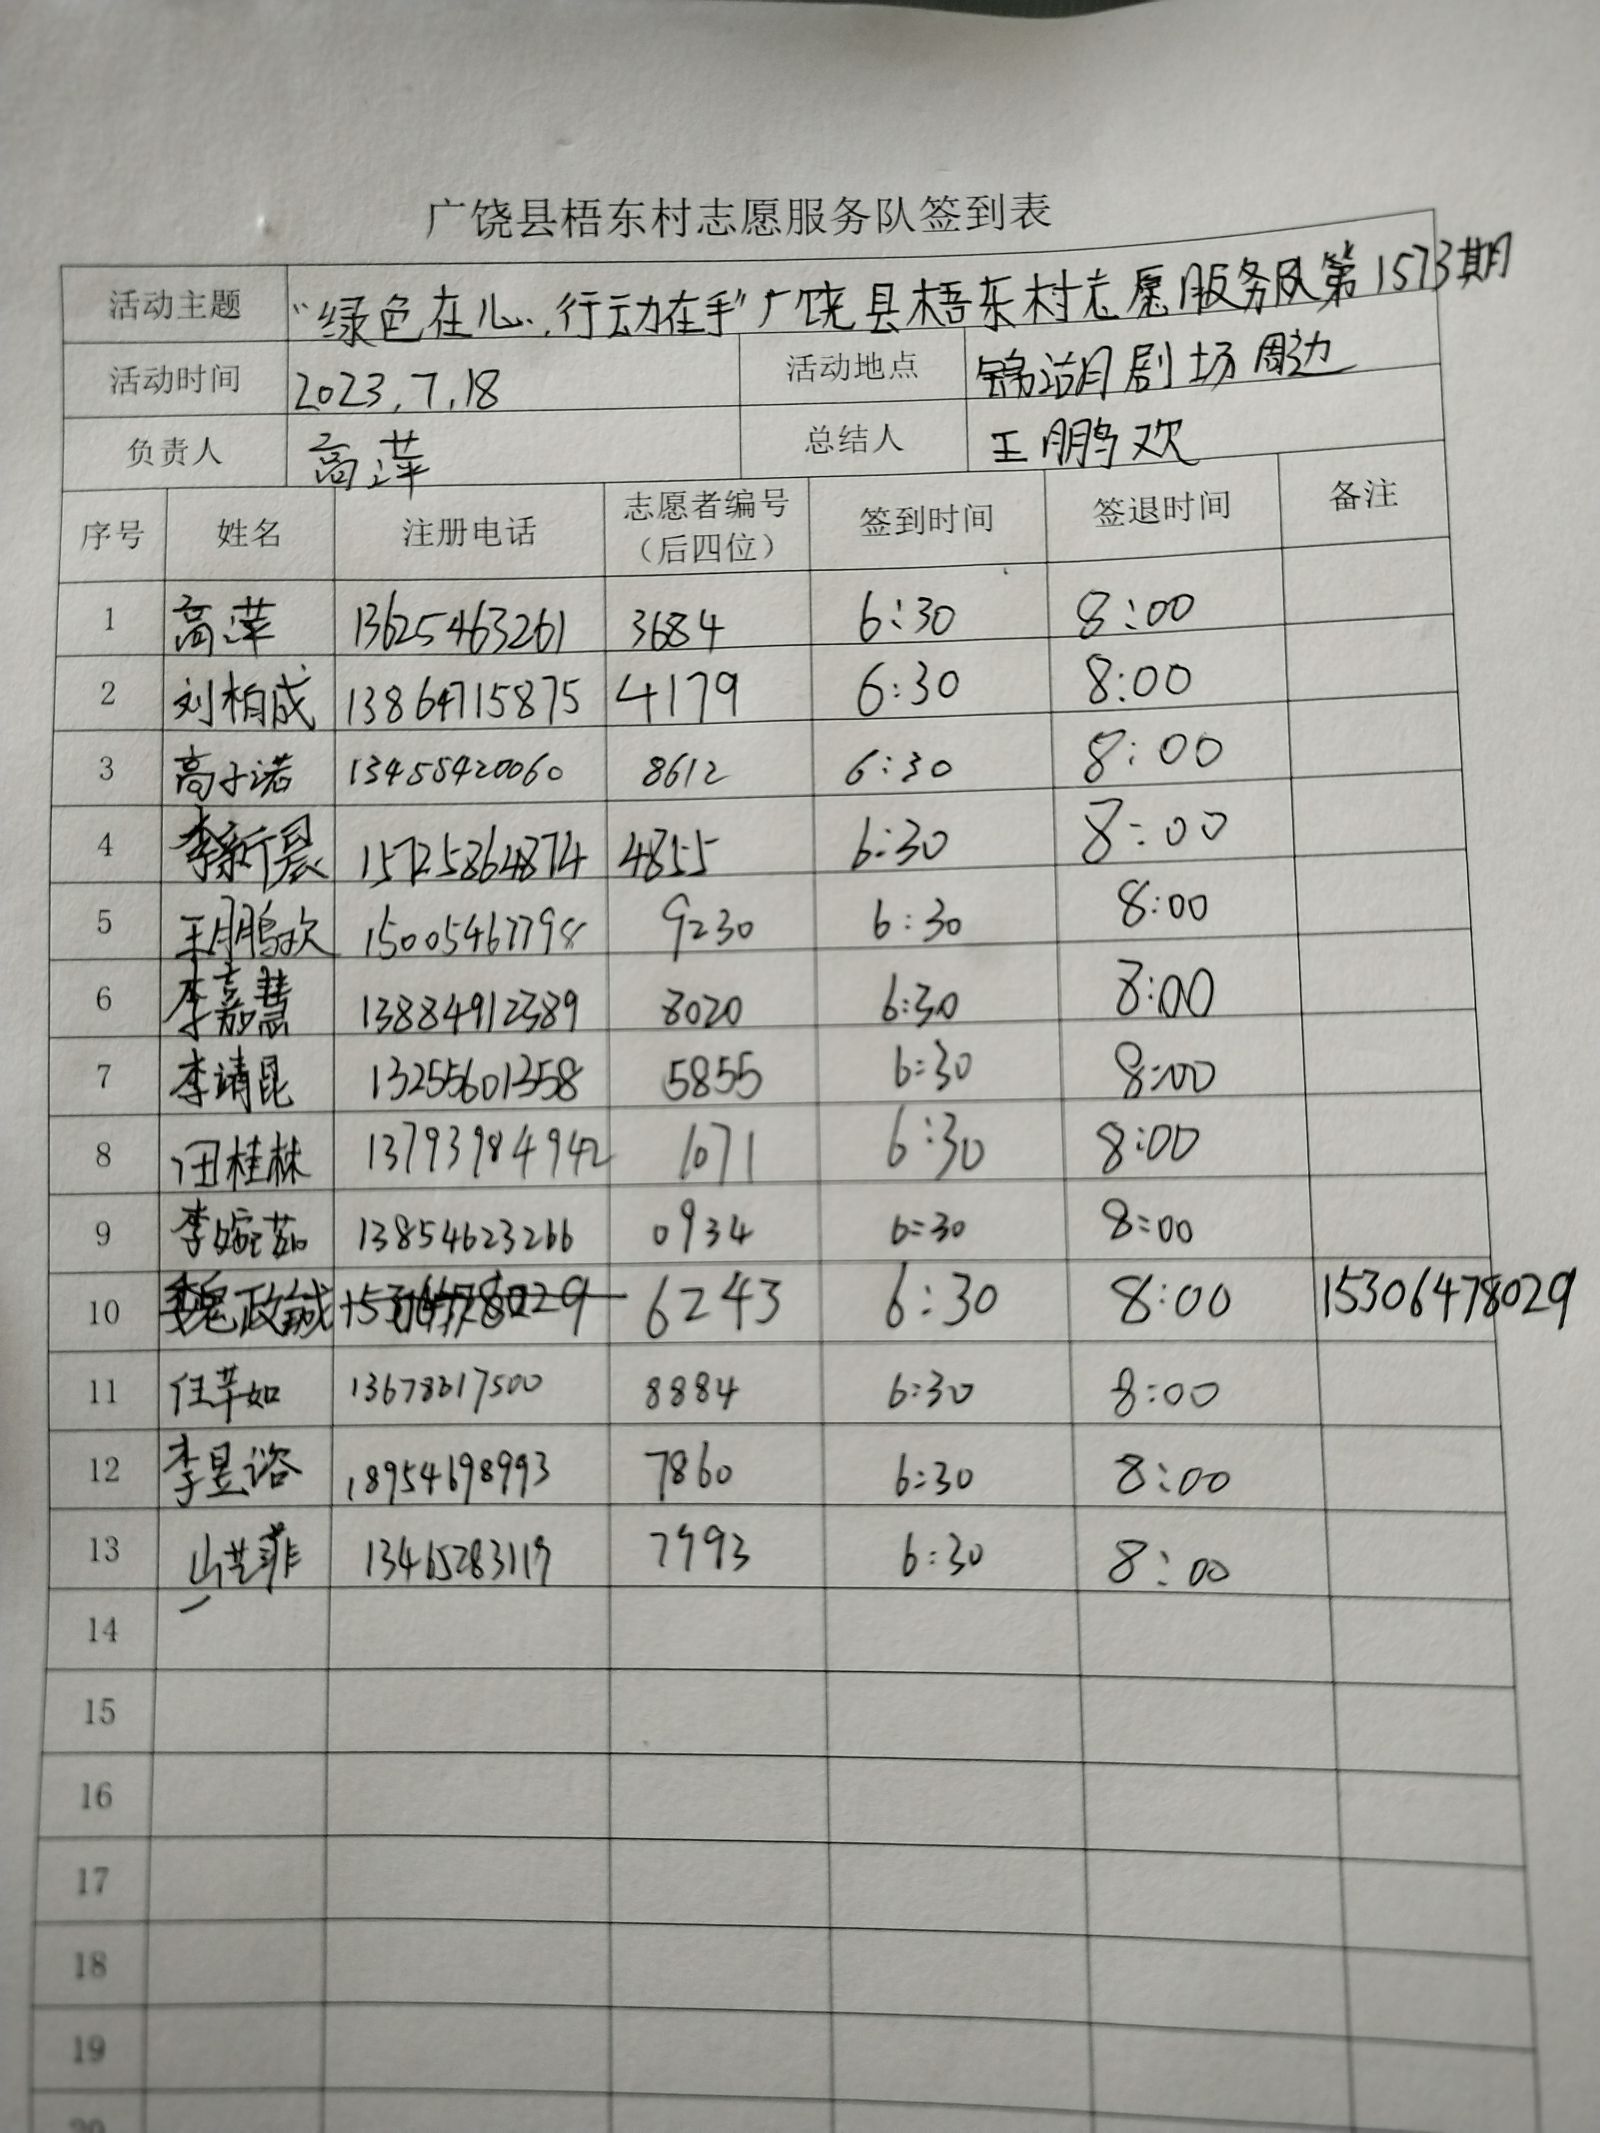 广饶县梧东村志愿服务队签到表
活动主题 “绿色在心，行动在手”广饶县梧东村志愿服务队第1573期
活动时间 2023.7.18 活动地点 锦湖剧场周边
负责人 高萍 总结人 王鹏欢
序号 姓名 注册电话 志愿者编号（后四位） 签到时间 签退时间 备注
1 高萍 13625463261 3684 6:30 8:00
2 刘柏成 13864715875 4179 6:30 8:00
3 高子诺 13455420060 8612 6:30 8:00
4 李新晨 15725864874 4855 6:30 8:00
5 王鹏欢 15005467798 9230 6:30 8:00
6 李嘉慧 13884912389 8020 6:30 8:00
7 李靖昆 13255601358 5855 6:30 8:00
8 田桂林 13793984942 1071 6:30 8:00
9 李婉茹 13854623266 0934 6:30 8:00
10 魏政鋮 6243 6:30 8:00 15306478029
11 任芊如 13678617500 8884 6:30 8:00
12 李昱谘 18954698993 7860 6:30 8:00
13 山芸菲 13465283119 7993 6:30 8:00
14
15
16
17
18
19
20